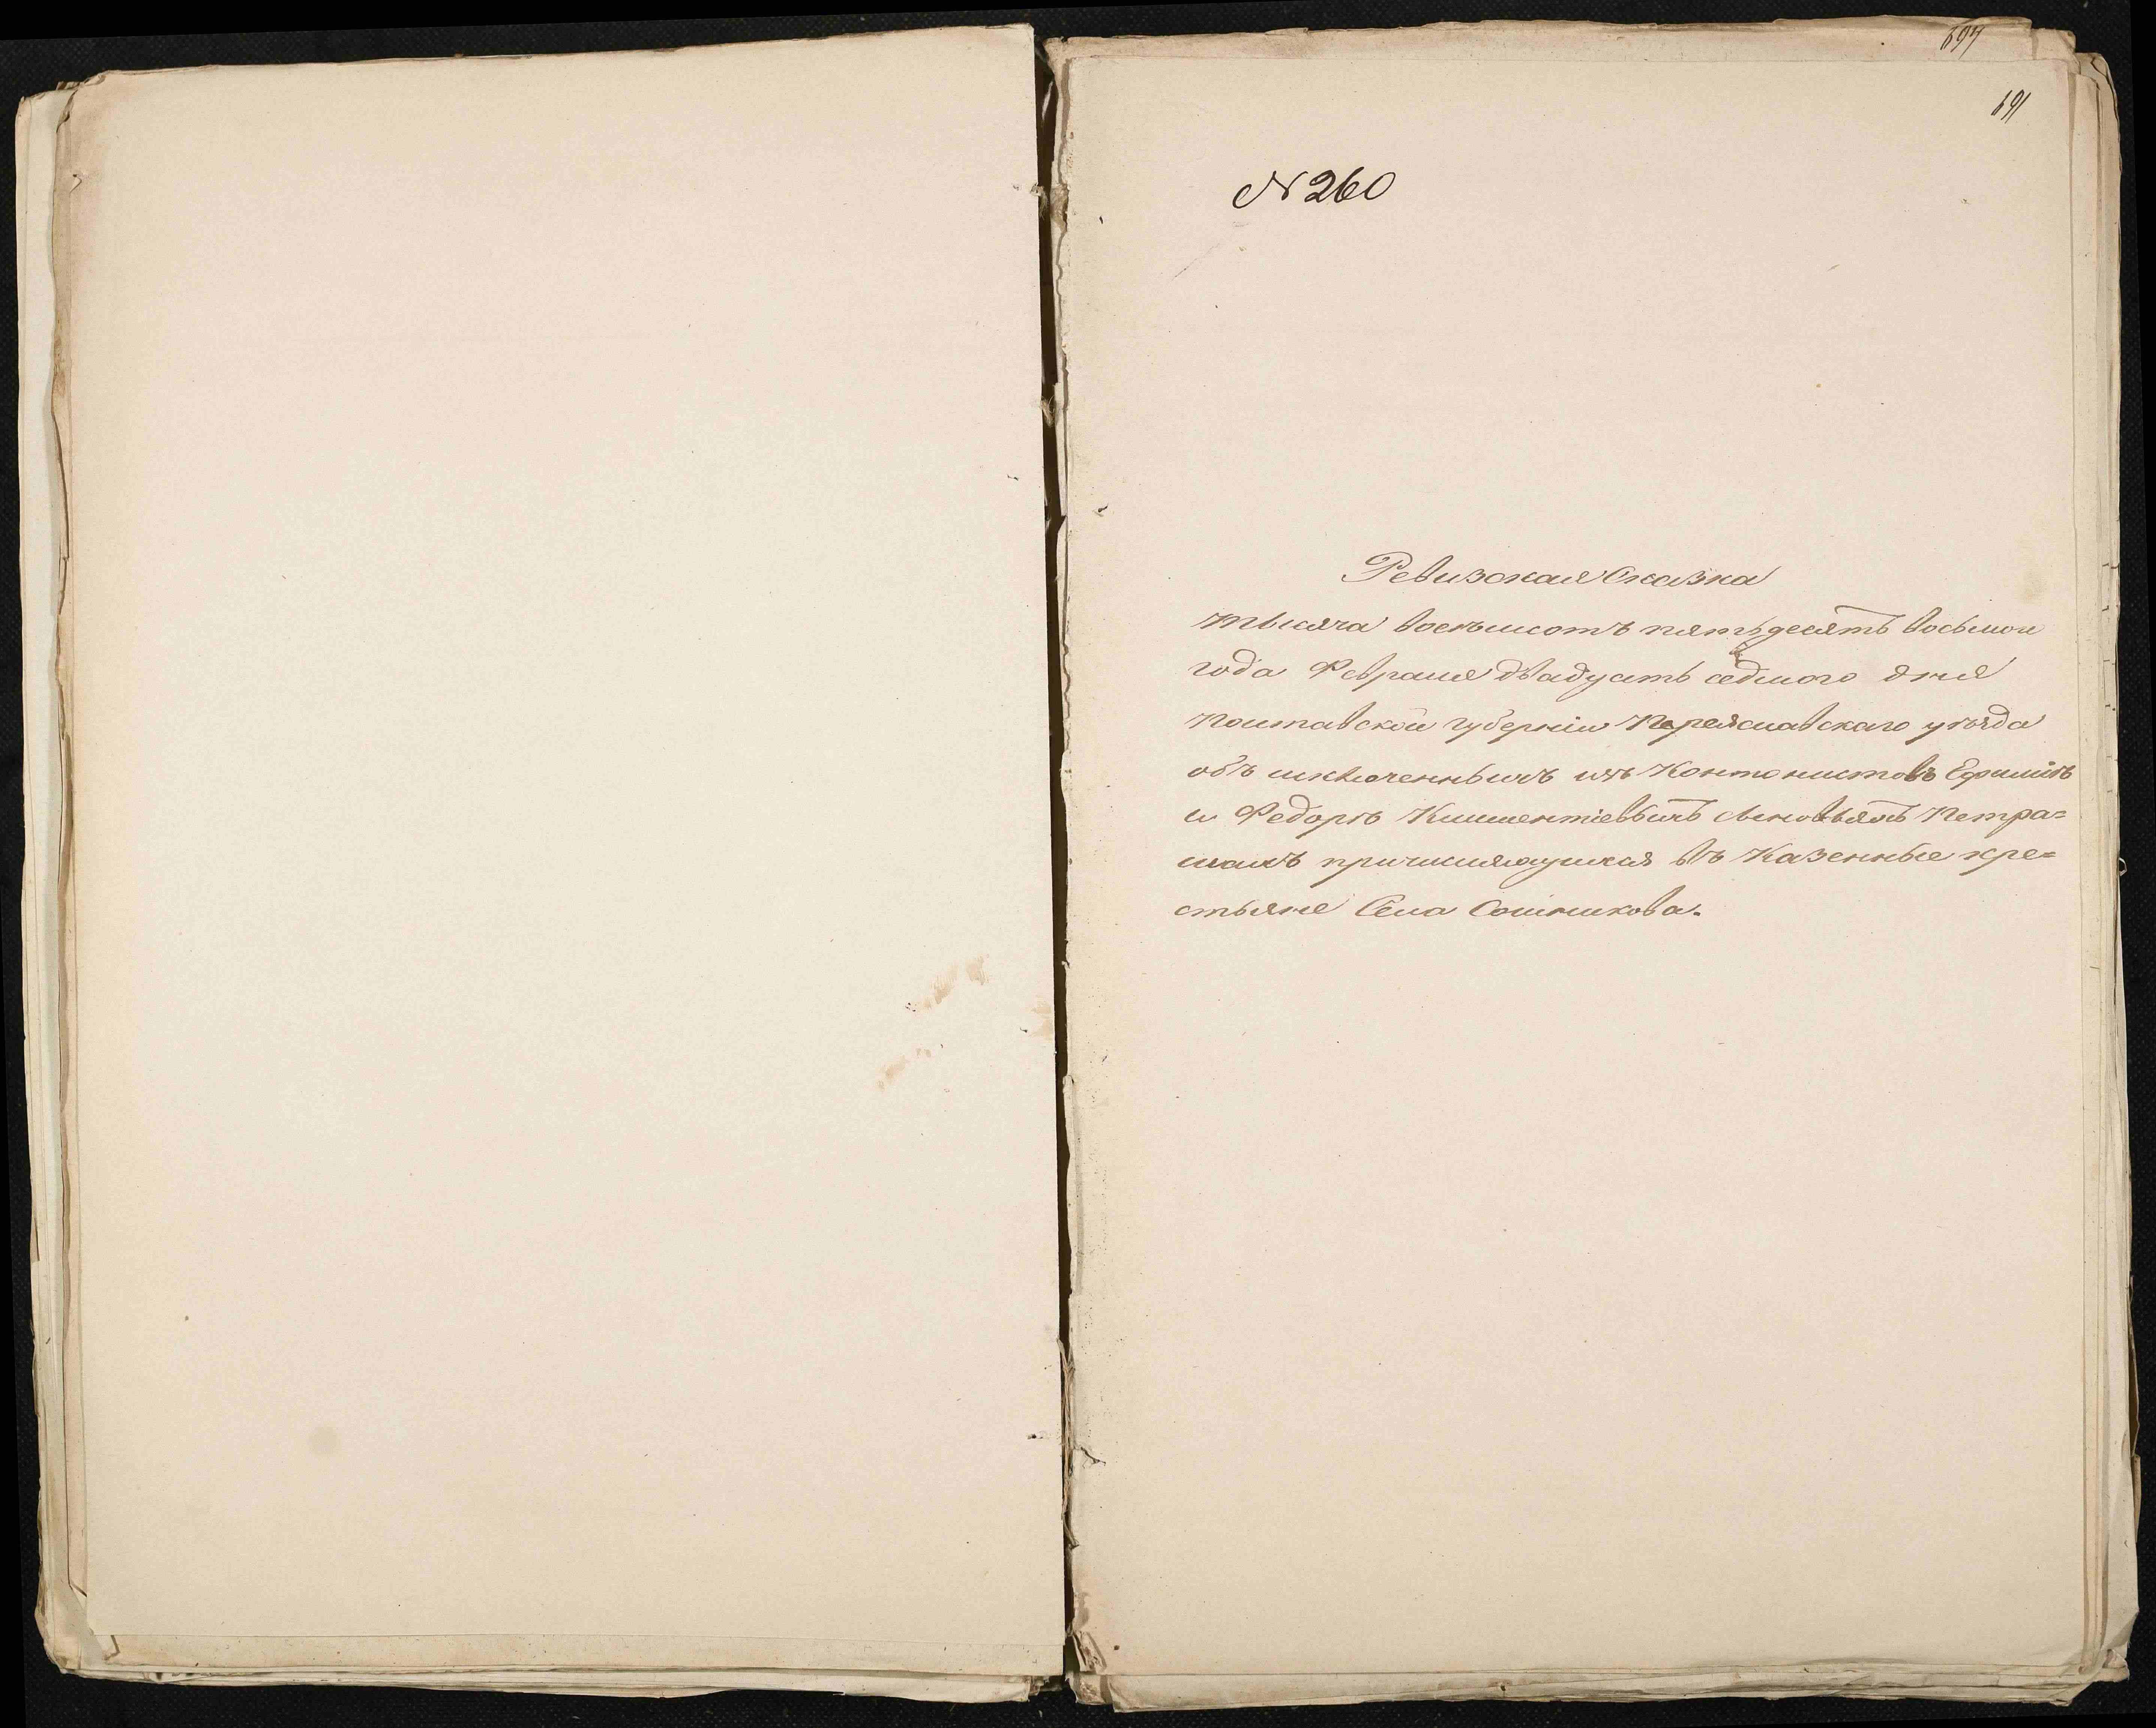 697
691
№ 260
Ревизская Сказка
тысяча восемьсотъ пятьдесятъ восьмого
года Февраля двадцать седмого дня
Полтавской губерніи Переяславскаго уѣзда
объ исключенныхъ изъ Кантонистовъ Ефимѣ
и Федорѣ Климентіевыхъ сыновьяхъ Петра=
шахъ причисляющихся въ Казенные кре=
стьяне Села Сошникова.